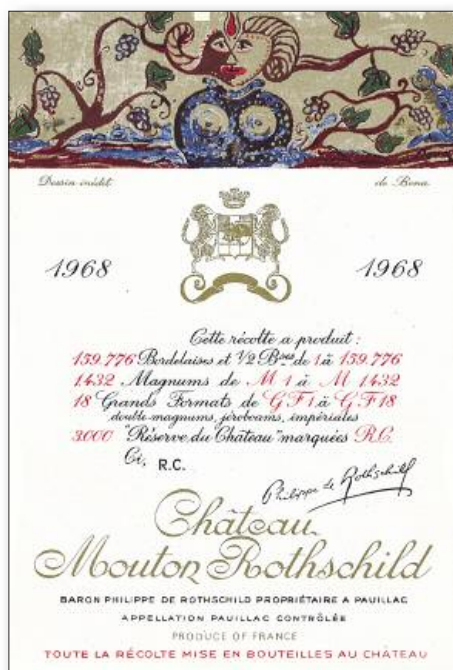 Dessin inédit de Bona
1968 1968
Cette récolte a produit :
159.776 Bordelaises et 1/2 Bses de 1 à 159.776
1.432 Magnums de M 1 à M 1.432
18 Grands Formats de G F 1 à G F 18
double-magnums, jéroboams, impériales
3.000 "Réserve du Château" marquées R.C.
Ci, R.C.
Philippe de Rothschild
Château
Mouton Rothschild
BARON PHILIPPE DE ROTHSCHILD PROPRIÉTAIRE A PAUILLAC
APPELLATION PAUILLAC CONTRÔLÉE
PRODUCE OF FRANCE
TOUTE LA RÉCOLTE MISE EN BOUTEILLES AU CHÂTEAU